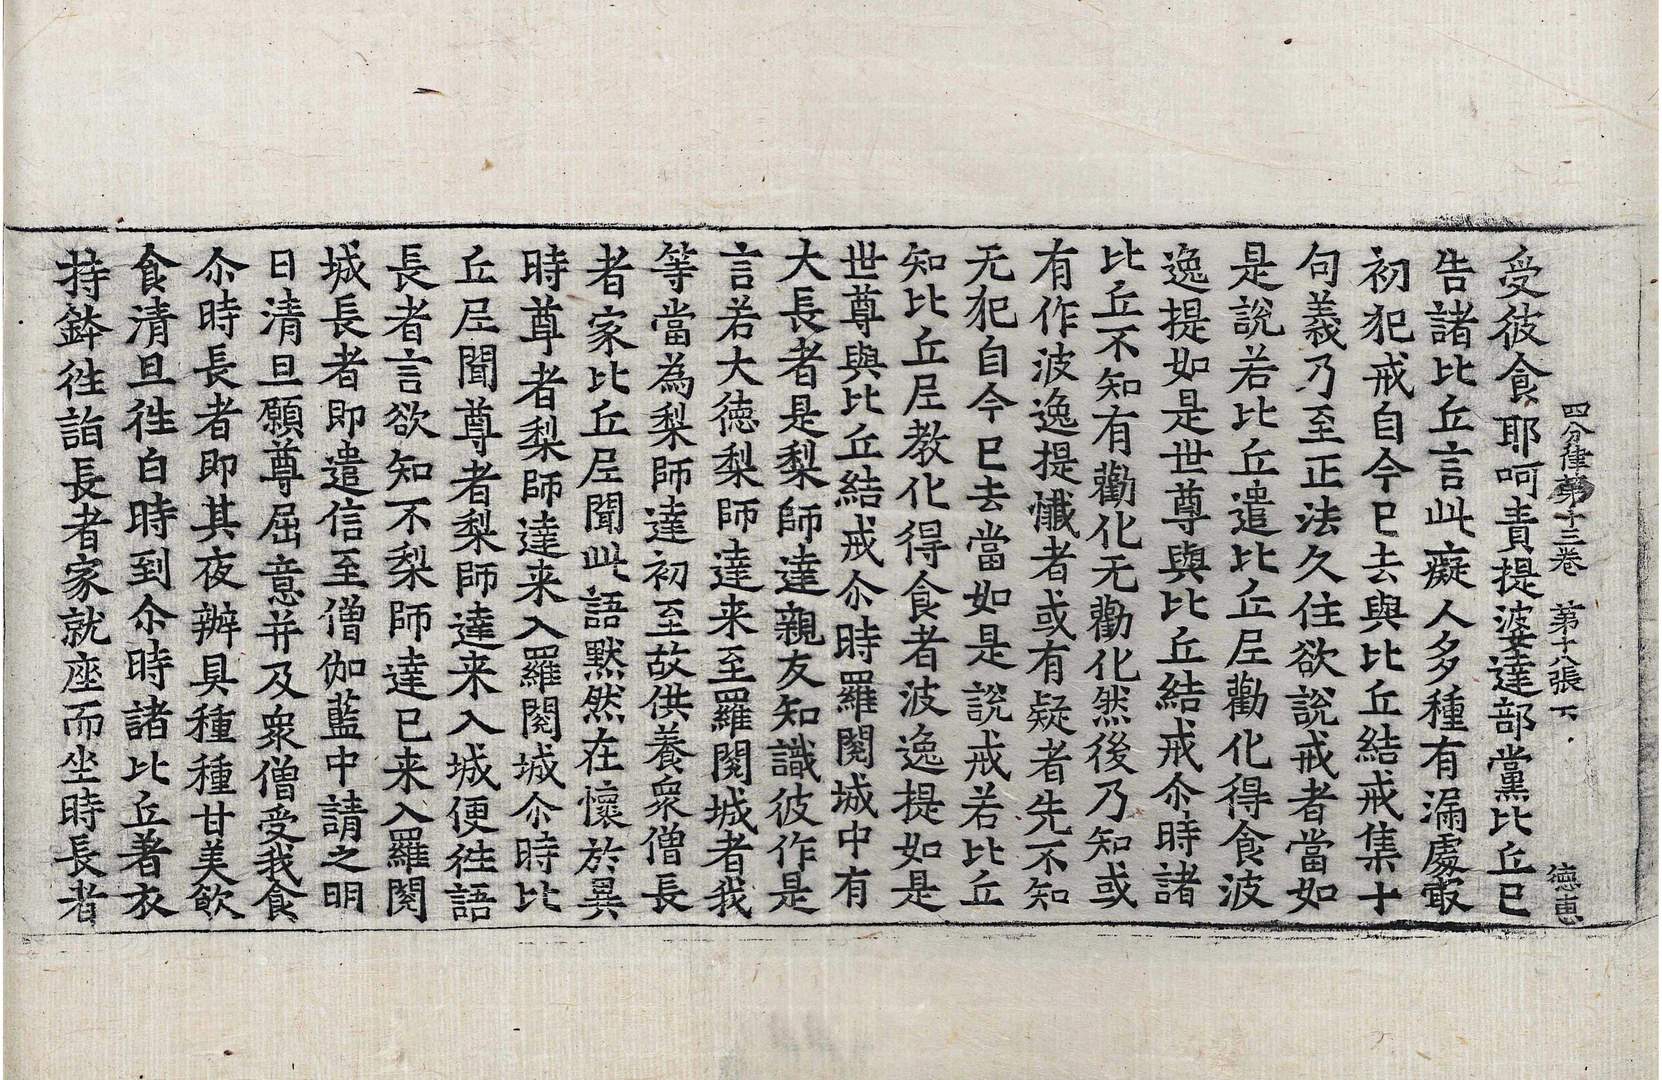 四分律第十三卷　第十八張　下　德惠
受彼食耶呵責提婆達部黨比丘已
告諸比丘言此癡人多種有漏處㝡
初犯戒自今已去與比丘結戒集十
句義乃至正法久住欲說戒者當如
是說若比丘遣比丘尼勸化得食波
逸提如是世尊與比丘結戒尒時諸
比丘不知有勸化无勸化然後乃知或
有作波逸提懺者或有疑者先不知
无犯自今已去當如是說戒若比丘
知比丘尼教化得食者波逸提如是
世尊與比丘結戒尒時羅閱城中有
大長者是梨師達親友知識彼作是
言若大德梨師達来至羅閱城者我
等當為梨師達初至故供養衆僧長
者家比丘尼聞此語默然在懷於異
時尊者梨師達来入羅閱城尒時比
丘尼聞尊者梨師達来入城便徃語
長者言欲知不梨師達已来入羅閱
城長者即遣信至僧伽藍中請之明
日清旦願尊屈意并及衆僧受我食
尒時長者即其夜辦具種種甘美飲
食清旦徃白時到尒時諸比丘著衣
持鉢徃詣長者家就座而坐時長者